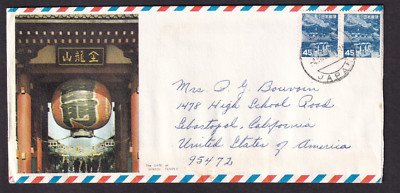 金龍山
45
45
JAPAN
Mrs P G Bouvoin
1478 High School Road
Sebastopol, California
United States of America
95472